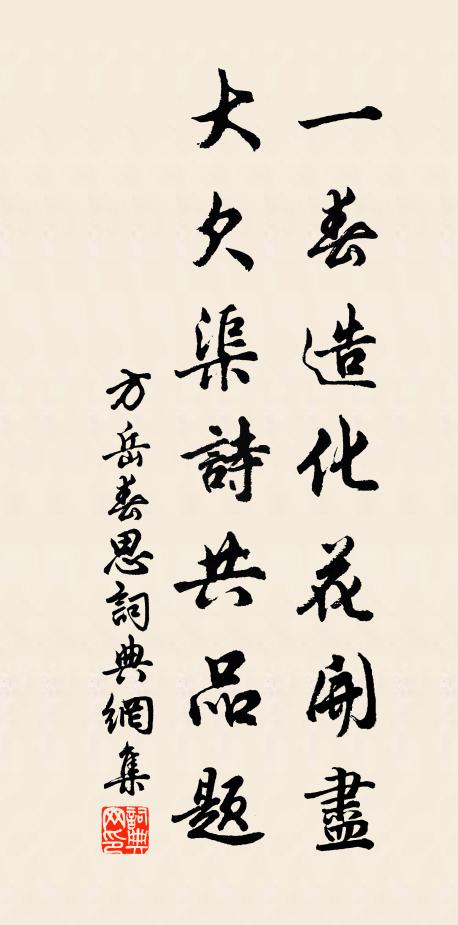 一春造化花開盡
大欠渠詩共品題
方岳春思詞典網集
詞典网印